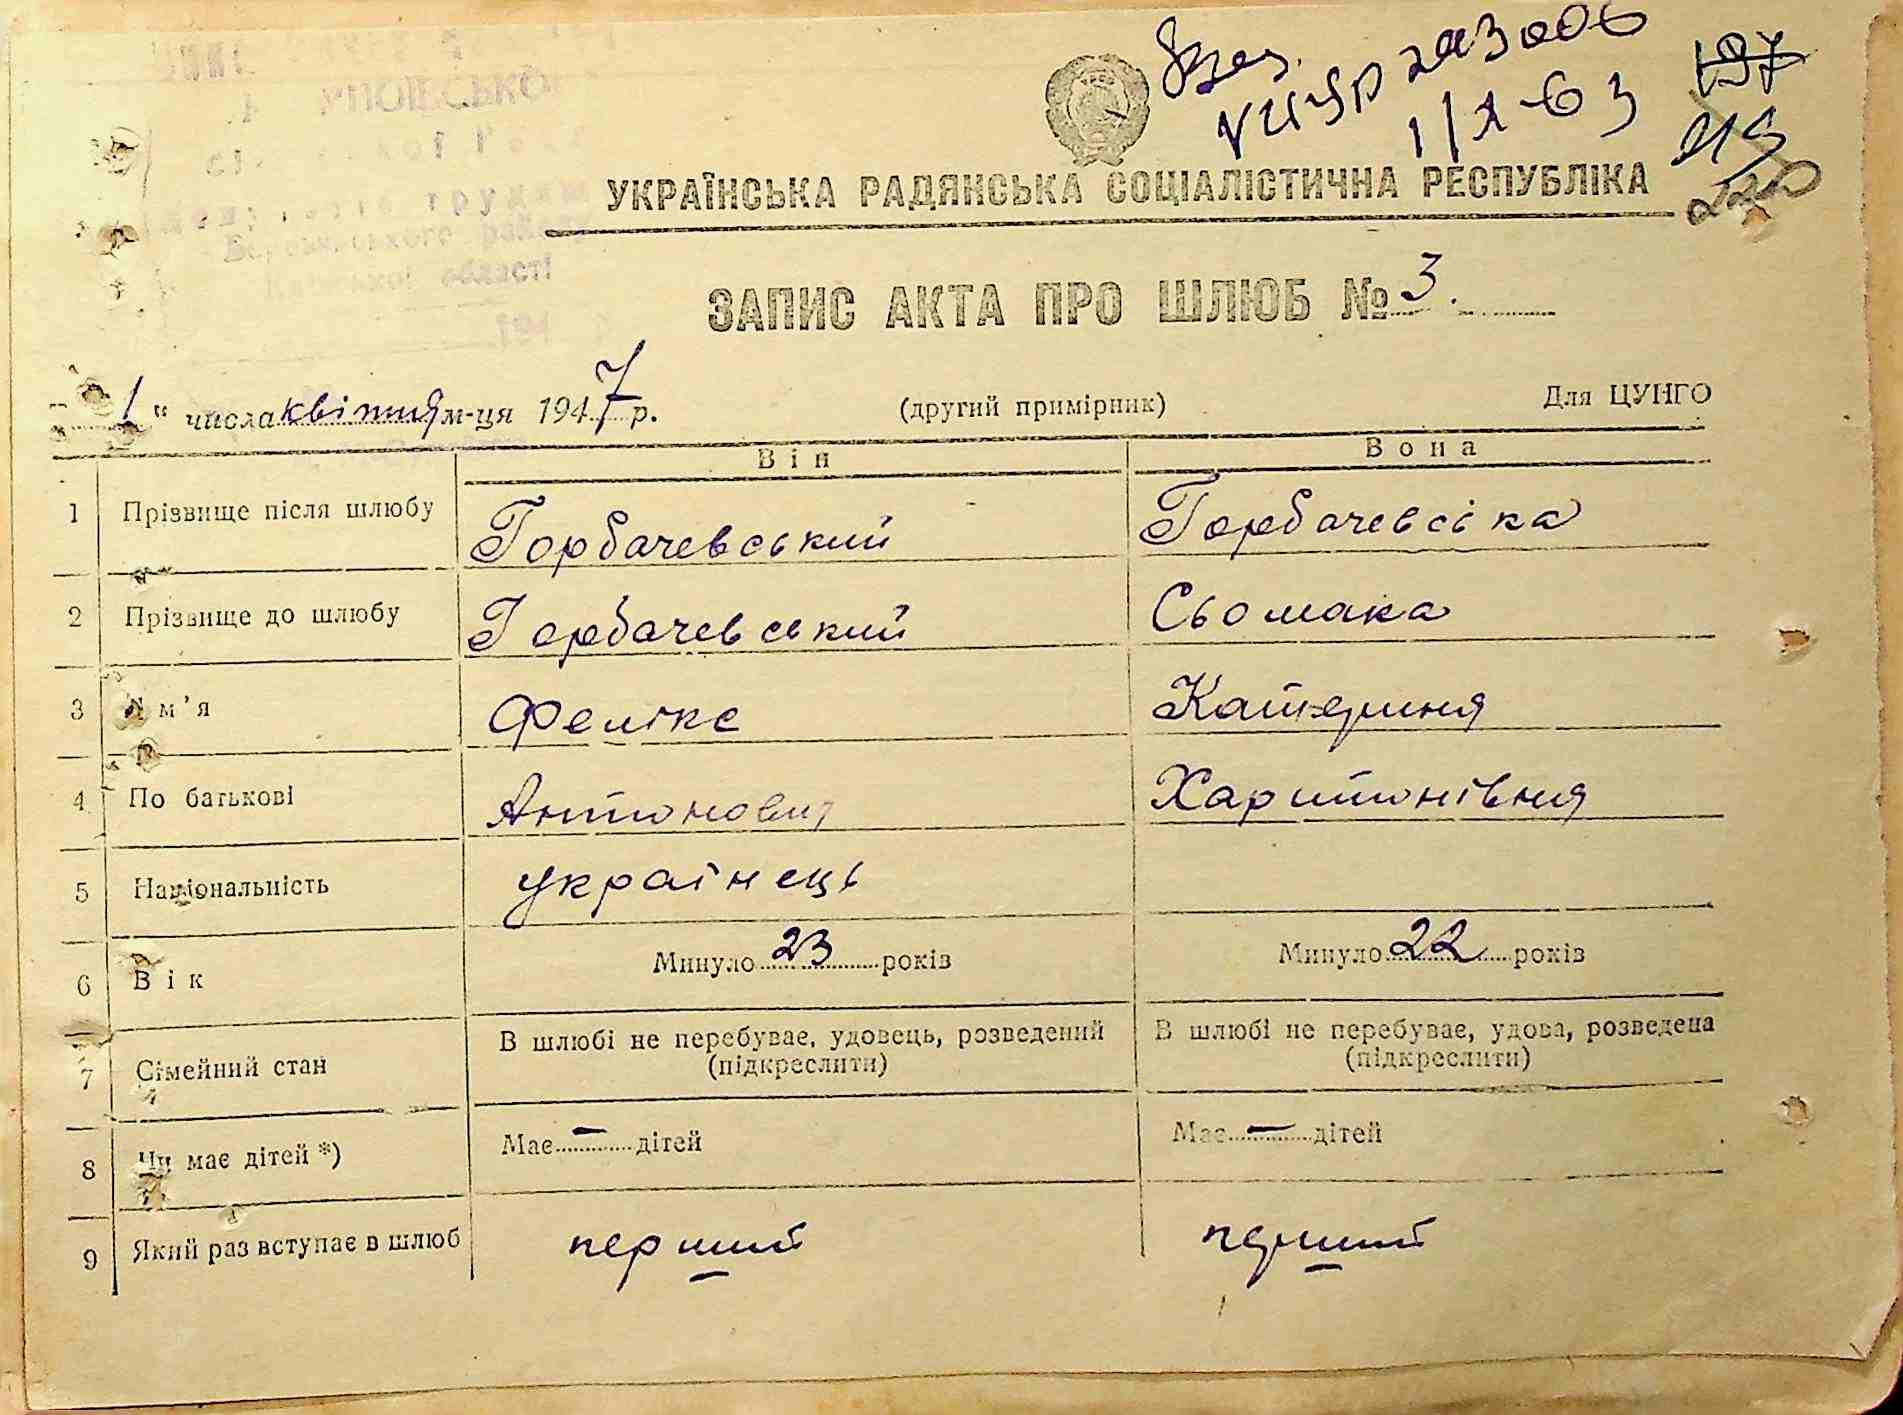 УКРАЇНСЬКА РАДЯНСЬКА СОЦІАЛІСТИЧНА РЕСПУБЛІКА
197
219
220
області
194
ЗАПИС АКТА ПРО ШЛЮБ № 3.
1 " числа квітня м-ця 1947 р. (другий примірник) Для ЦУНГО
Він Вона
1 Прізвище після шлюбу Горбачевський Горбачевська
2 Прізвище до шлюбу Горбачевський Сьомака
3 Ім'я Фелікс Катерина
4 По батькові Антонович Харитонівна
5 Національність українець
6 Вік Минуло 23 років Минуло 22 років
7 Сімейний стан В шлюбі не перебуває, удовець, розведений В шлюбі не перебуває, удова, розведена
(підкреслити) (підкреслити)
8 Чи має дітей *) Має — дітей Має — дітей
9 Який раз вступає в шлюб перший перший